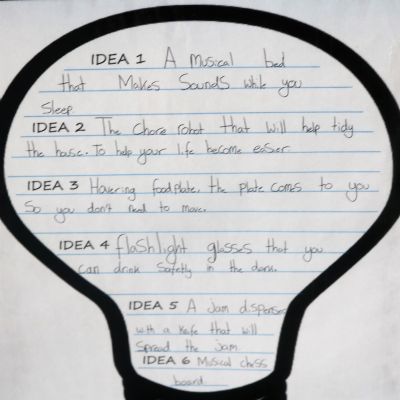 IDEA 1 A Musical bed
that Makes Sounds while you
Sleep
IDEA 2 The Chore robot that will help tidy
the house. To help your life become easier
IDEA 3 Hovering foodplate, the plate comes to you
So you don't need to move.
IDEA 4 flashlight glasses that you
can drink Safetly in the dark.
IDEA 5 A jam dispenser
with a knife that will
Spread the jam
IDEA 6 Musical chess
board